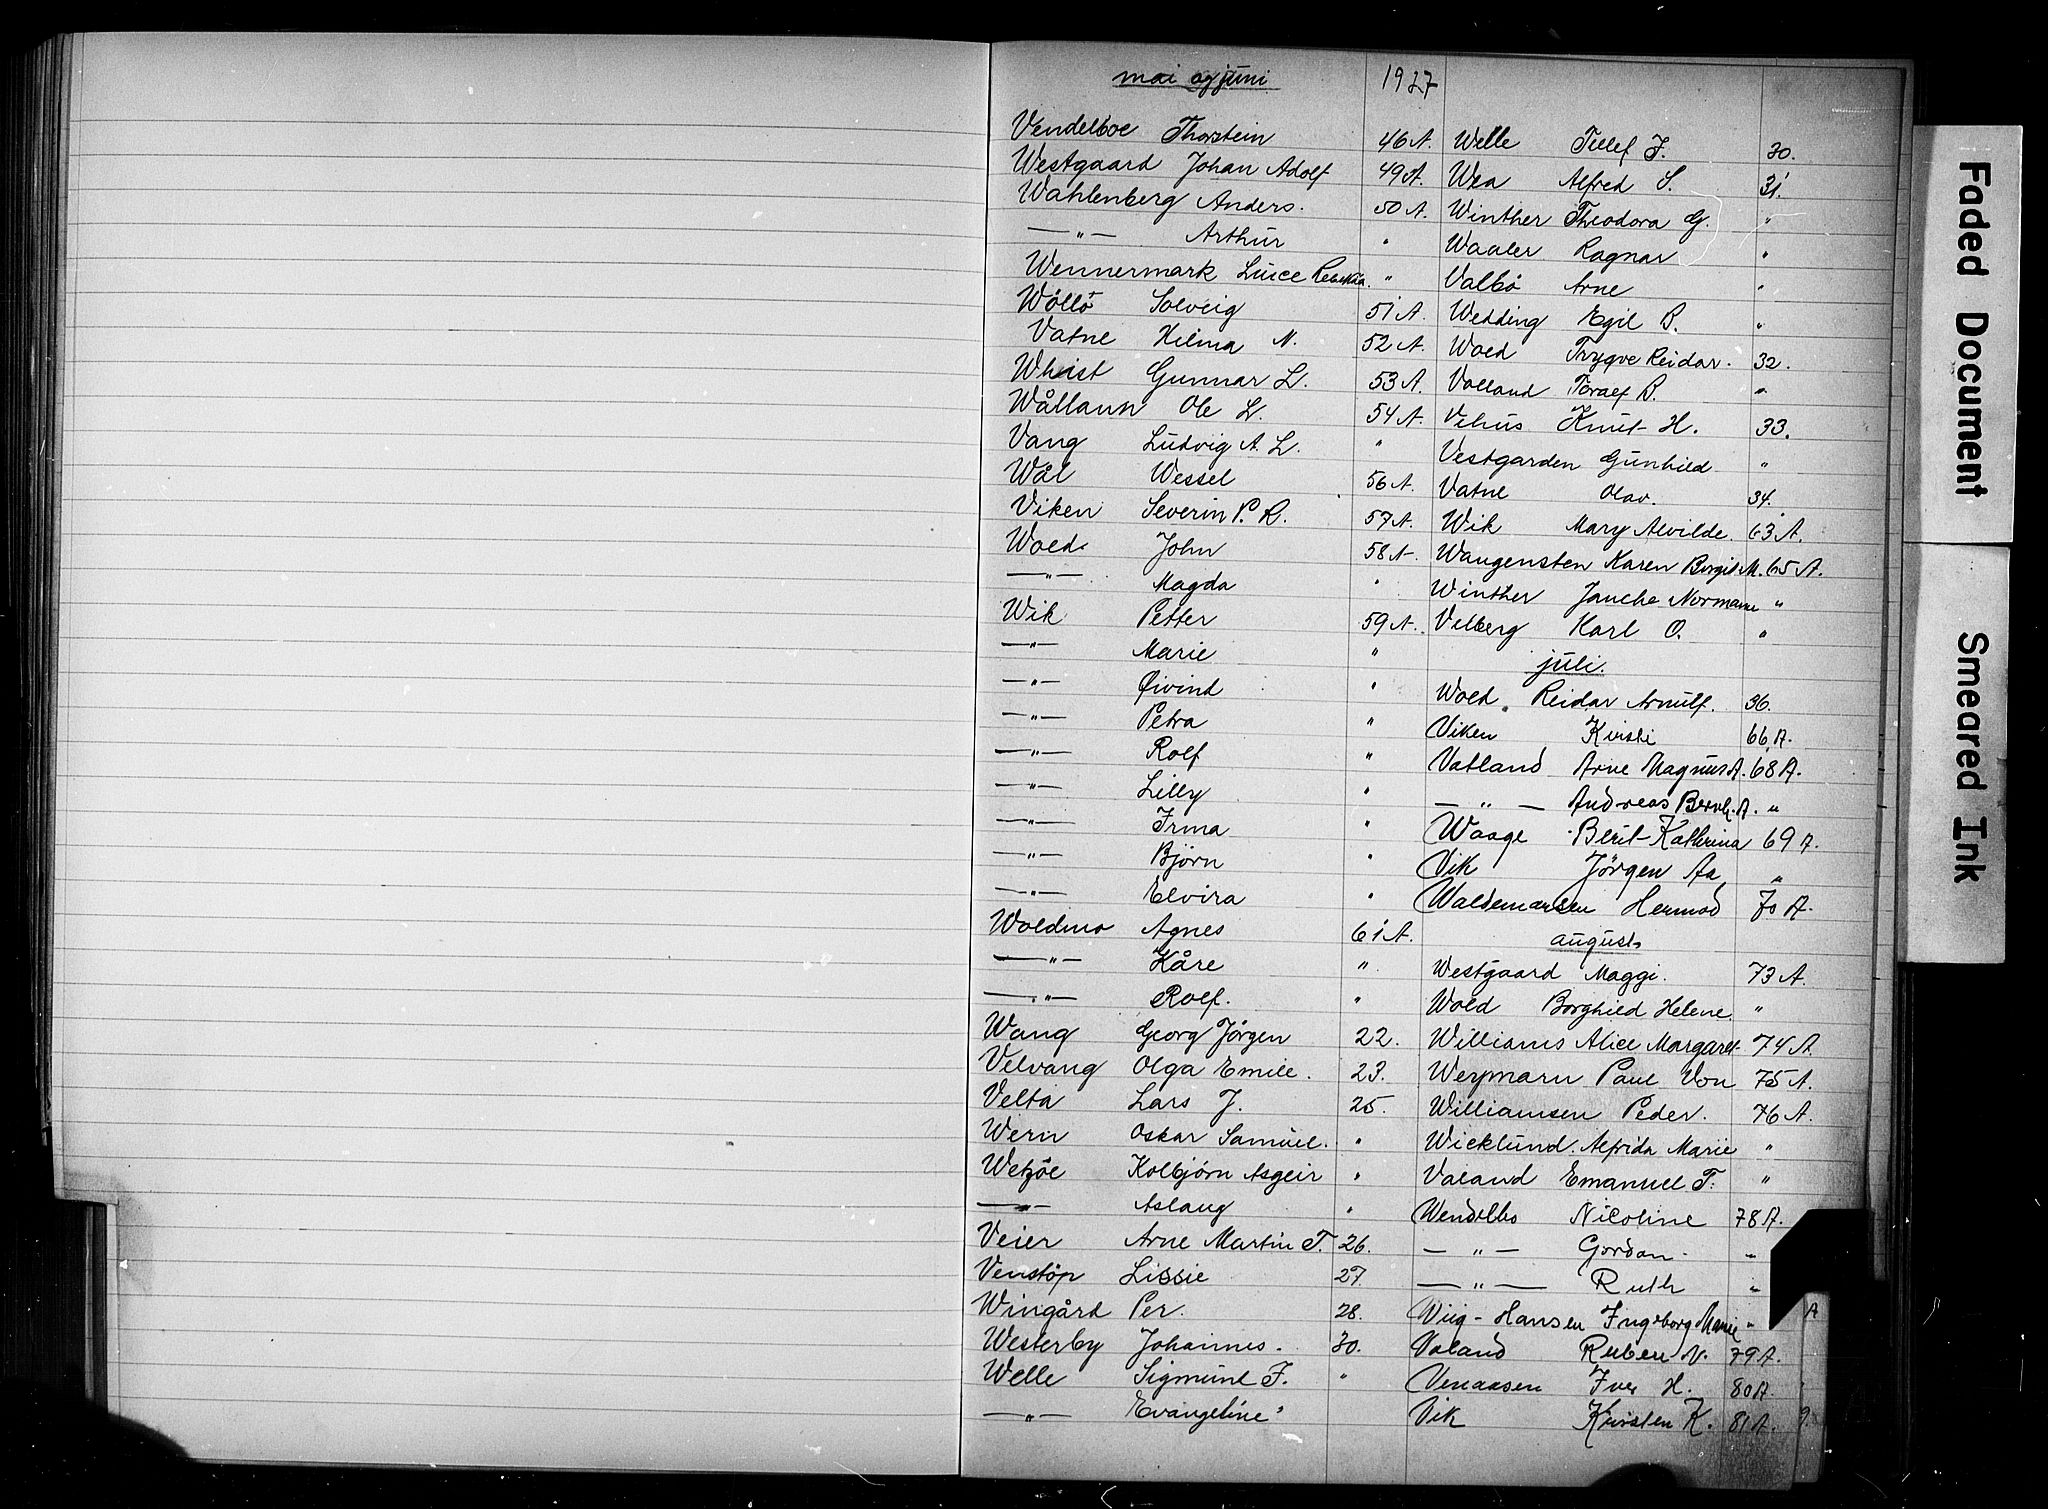 mai og juni 1927
Vendelboe Thorstein 46 A.
Westgaard Johan Adolf 49 A.
Wahlenberg Anders. 50 A.
—"— Arthur "
Wennermark Luice Rebekka. "
Wöllö Solveig 51 A.
Vatne Hilma N. 52 A.
Whist Gunnar L. 53 A.
Wållann Ole L. 54 A.
Vang Ludvig A. L. "
Wål Wessel 56 A.
Viken Severin P. R. 57 A.
Wold John 58 A
—"— Magda "
Wik Petter 59 A.
—"— Marie "
—"— Øivind "
—"— Petra "
—"— Rolf "
—"— Lilly "
—"— Irma "
—"— Björn "
—"— Elvira "
Woldmo Agnes 61 A.
—"— Kåre "
—"— Rolf. "
Wang Georg Jörgen 22.
Velvang Olga Emile. 23.
Velta Lars J. 25.
Wern Oskar Samuel. "
Kolbjörn Asgeir "
—"— Aslaug "
Veier Arne Martin T. 26.
Venstöp Lissie 27.
Wingård Per. 28.
Westerby Johannes. 30.
Welle Sigmund F. "
—"— Evangeline "
Welle Tellef J. 30.
Wea Alfred S. 31.
Winther Theodora G. "
Waaler Ragnar "
Valbö Arne "
Wedding Egil B. "
Wold Trygve Reidar. 32.
Volland Toralf B. "
Vehus Knut H. 33.
Vestgarden Gunhild "
Vatne Olav. 34.
Wik Mary Alvilde. 63 A.
Wangensten Karen Borgit M. 65 A.
Winther Jancke Normann "
Velberg Karl O. "
juli.
Wold Reidar Arnulf. 36.
Viken Kirsti 66 A.
Vatland Arne Magnus A. 68 A.
—"— Andreas Bernh. A. "
Waage Berit Kathrina 69 A.
Vik Jörgen Aa "
Waldemarsen Hermod 70 A.
august
Westgaard Maggi. 73 A.
Wold Borghild Helene. "
Williams Alice Margaret 74 A.
Weymarn Paul Von 75 A.
Williamsen Peder. 76 A.
Wicklund. Alfrida Marie "
Valand Emanuel T. "
Wendelbo Nicoline 78 A.
—"— Gordon "
—"— Ruth "
Wiig-Hansen Ingeborg Marie "
Valand Ruben N. 79 A.
Venaasen Iver H. 80 A
Vik Kirsten K. 81 A.
Faded Document
Smeared Ink